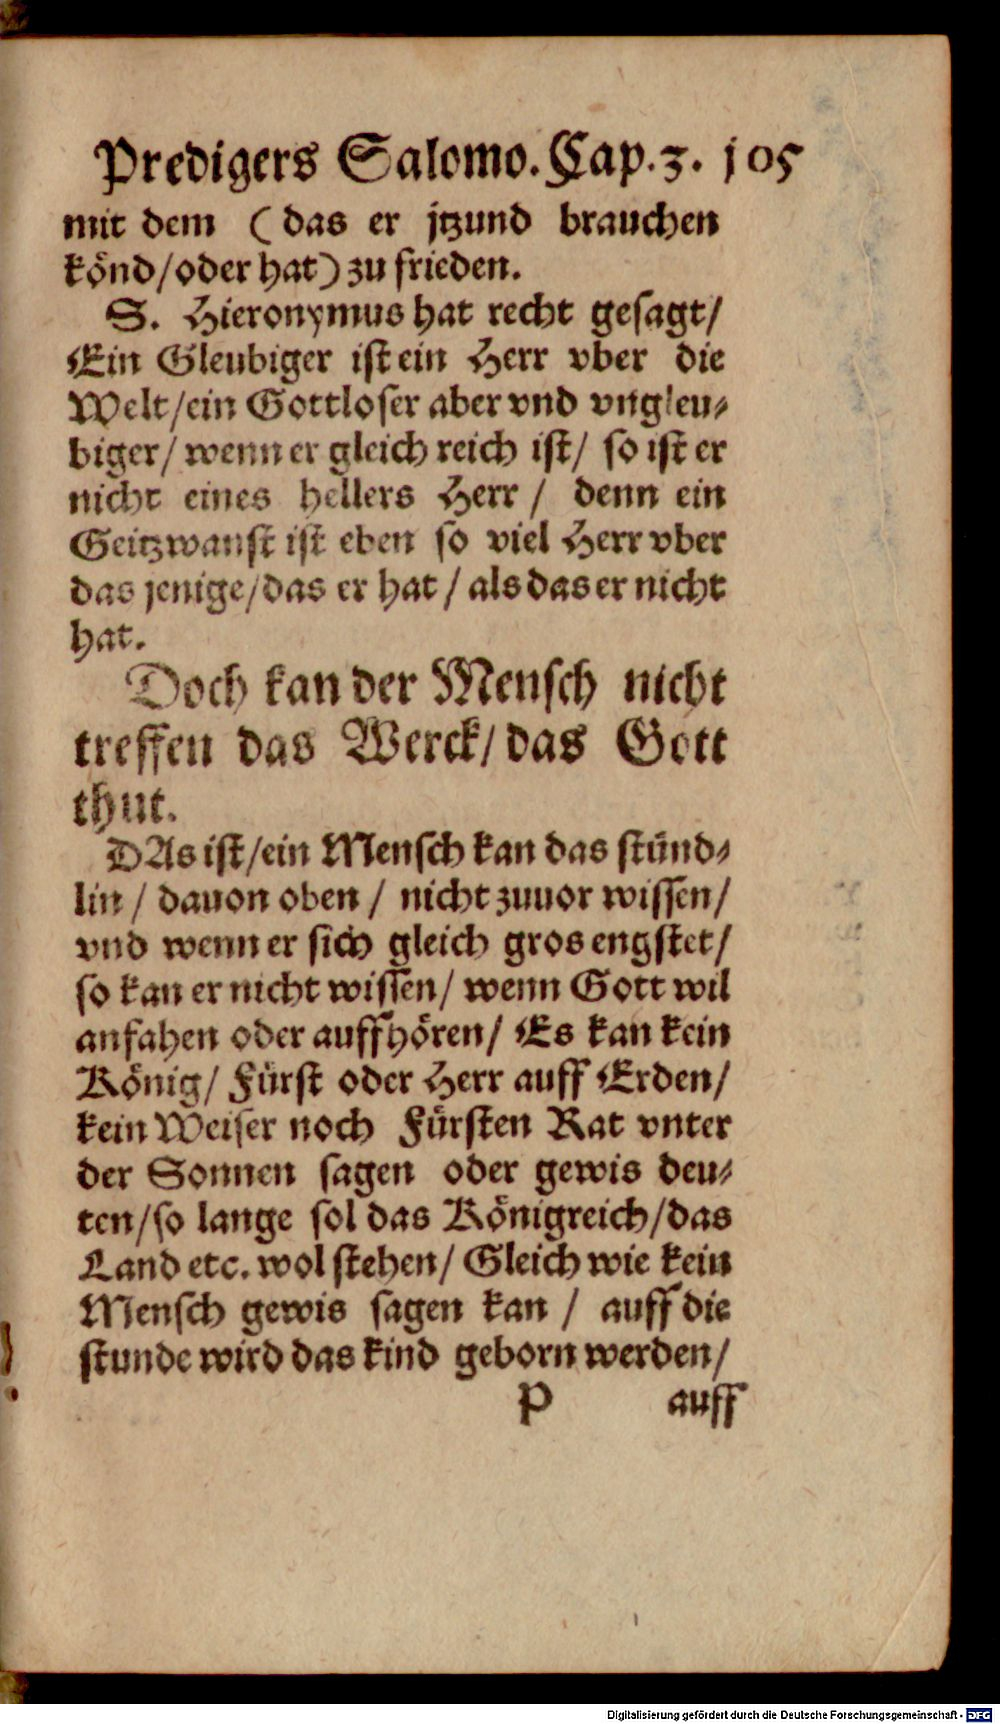 Predigers Salomo. Cap. 3. 105
mit dem (das er jtzund brauchen
könd/oder hat) zu frieden.
S. Hieronymus hat recht gesagt/
Ein Gleubiger ist ein Herr vber die
Welt/ein Gottloser aber vnd vngleu-
biger/ wenn er gleich reich ist/ so ist er
nicht eines hellers Herr / denn ein
Geitzwanst ist eben so viel Herr vber
das jenige/das er hat / als das er nicht
hat.
Doch kan der Mensch nicht
treffen das Werck/das Gott
thut.
DAs ist/ein Mensch kan das stünd-
lin / dauon oben / nicht zuuor wissen/
vnd wenn er sich gleich gros engstet/
so kan er nicht wissen/ wenn Gott wil
anfahen oder auffhören/ Es kan kein
König/ Fürst oder Herr auff Erden/
kein Weiser noch Fürsten Rat vnter
der Sonnen sagen oder gewis deu-
ten/so lange sol das Königreich/das
Land etc. wol stehen/ Gleich wie kein
Mensch gewis sagen kan / auff die
stunde wird das kind geborn werden/
P auff
Digitalisierung gefördert durch die Deutsche Forschungsgemeinschaft - DFG